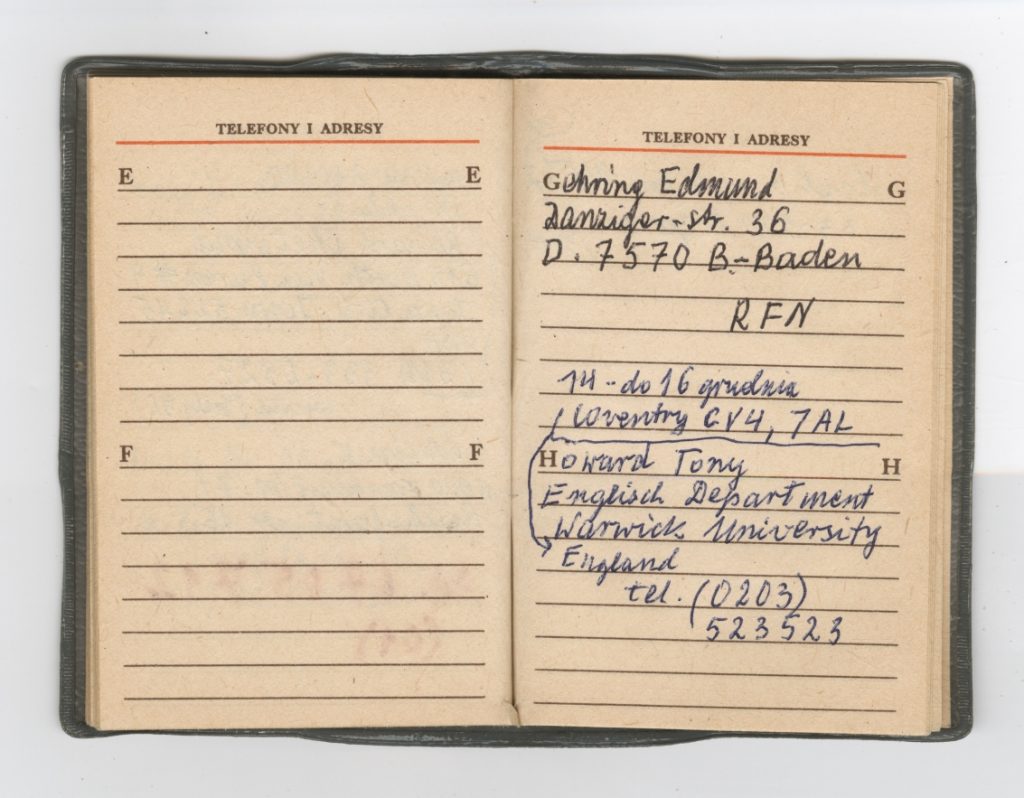 TELEFONY I ADRESY
E E
F F
TELEFONY I ADRESY
Gehring Edmund G
Danziger-str. 36
D. 7570 B.-Baden
RFN
14-do 16 grudnia
Coventry CV4, 7AL
Howard Tony H
Englisch Department
Warwick University
England
tel. (0203)
523523